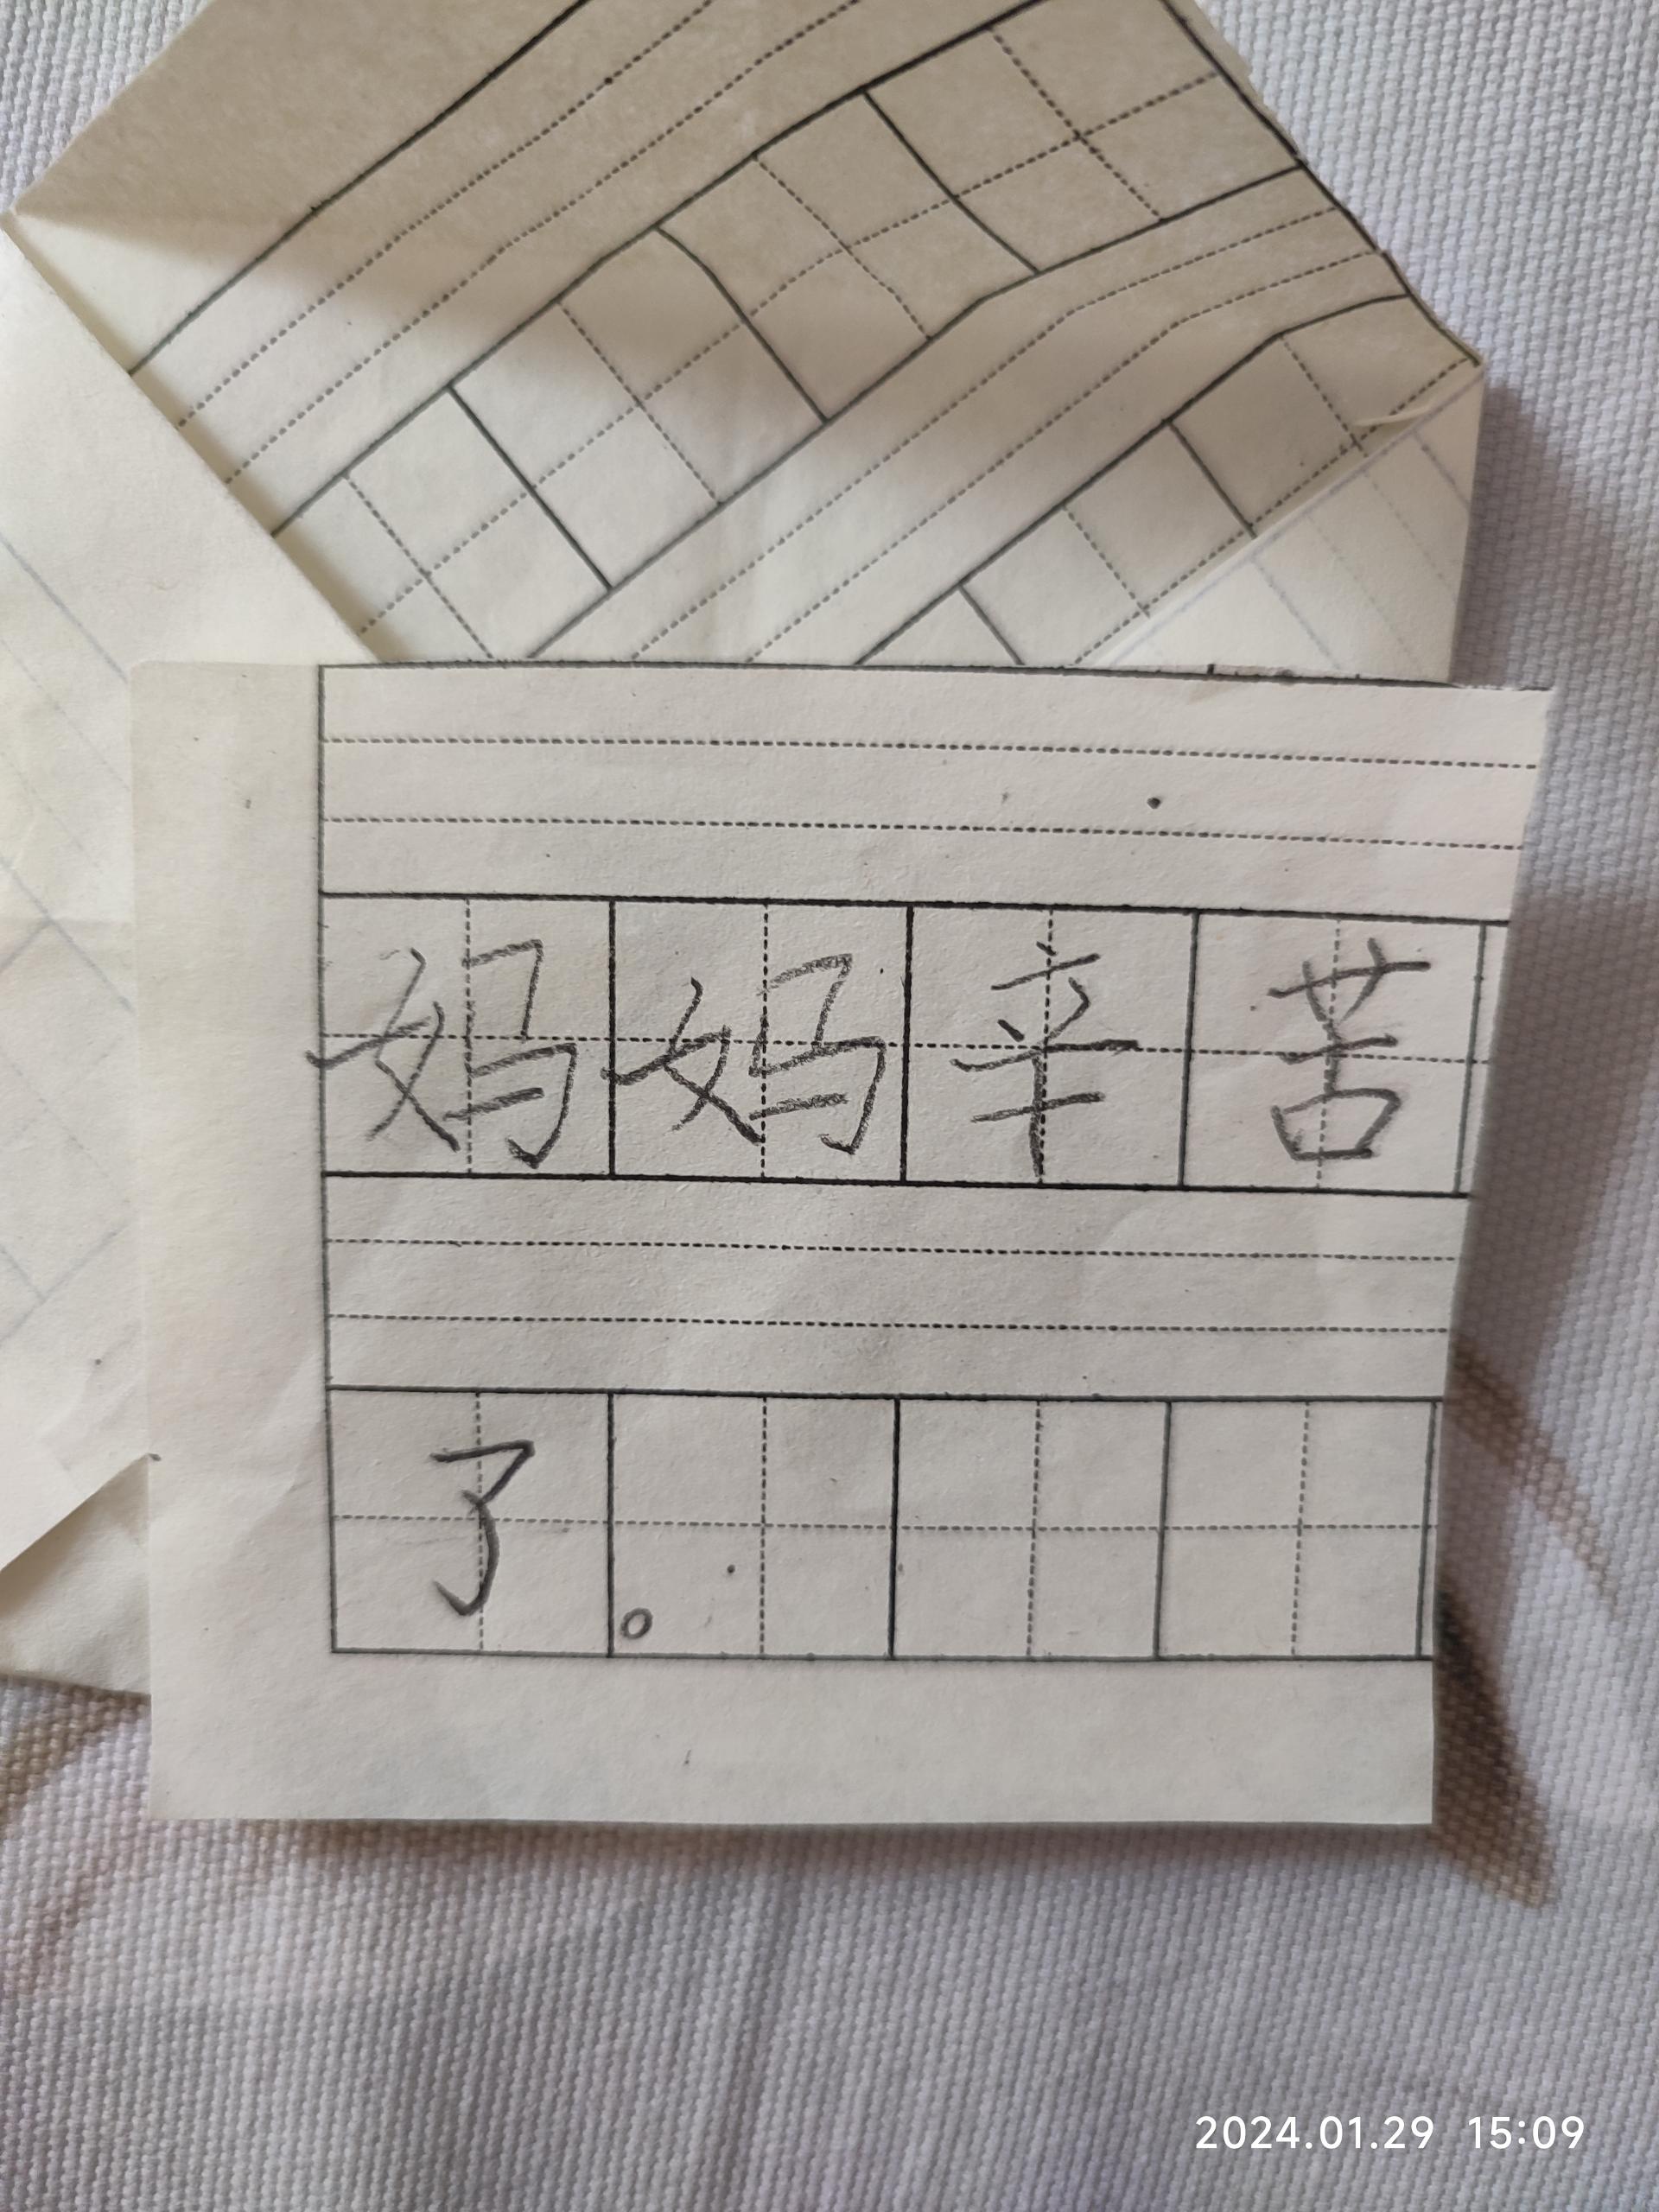 妈妈辛苦
了。
2024.01.29 15:09